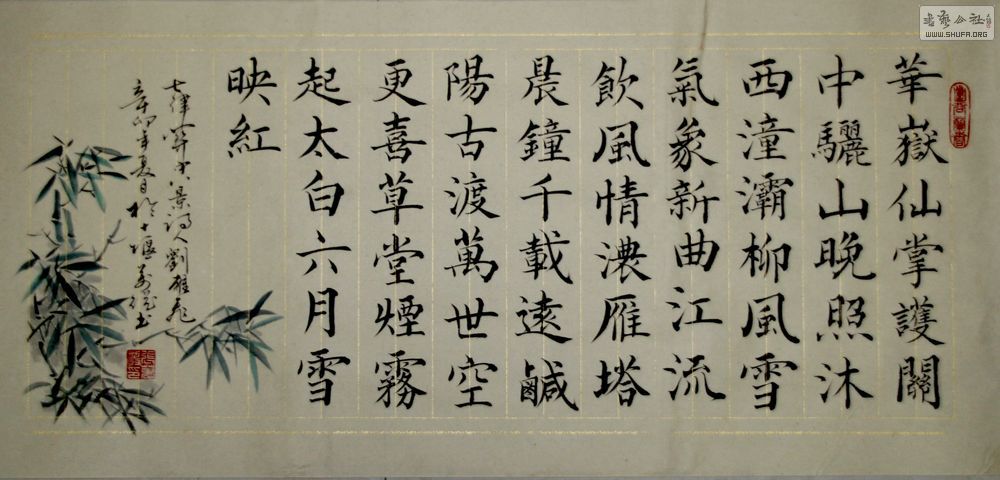 華嶽仙掌護關
中驪山晚照沐
西潼灞柳風雪
氣象新曲江流
飲風情濃雁塔
晨鐘千載遠鹹
陽古渡萬世空
更喜草堂煙霧
起太白六月雪
映紅
七律關中八景詩人劉雄飛
辛卯年夏日於十堰
書法公社
WWW.SHUFA.ORG